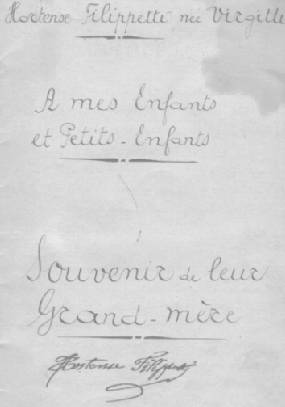 Hortense Filippette née Virgitte
A mes Enfants
et Petits-Enfants
Souvenir de leur
Grand-mère
Hortense Filippette